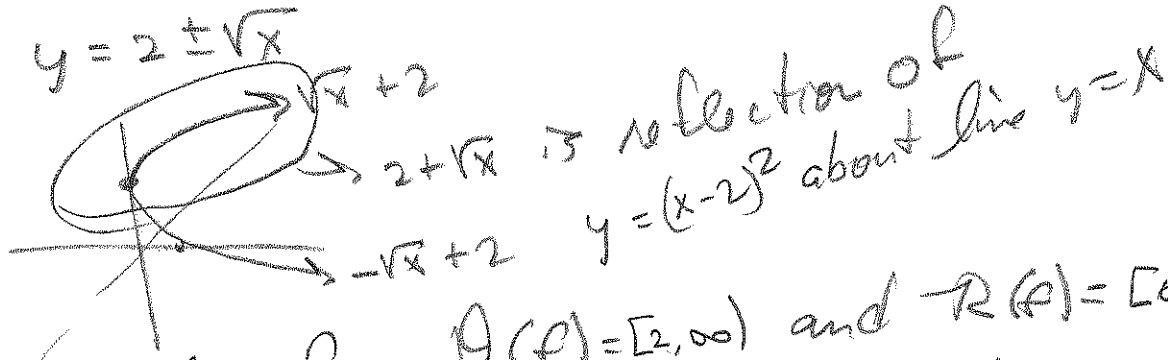 y = 2 ± √x
√x + 2
2 + √x is reflection of
y = (x-2)² about line y = x
-√x + 2
D(f) = [2, ∞) and R(f) = [